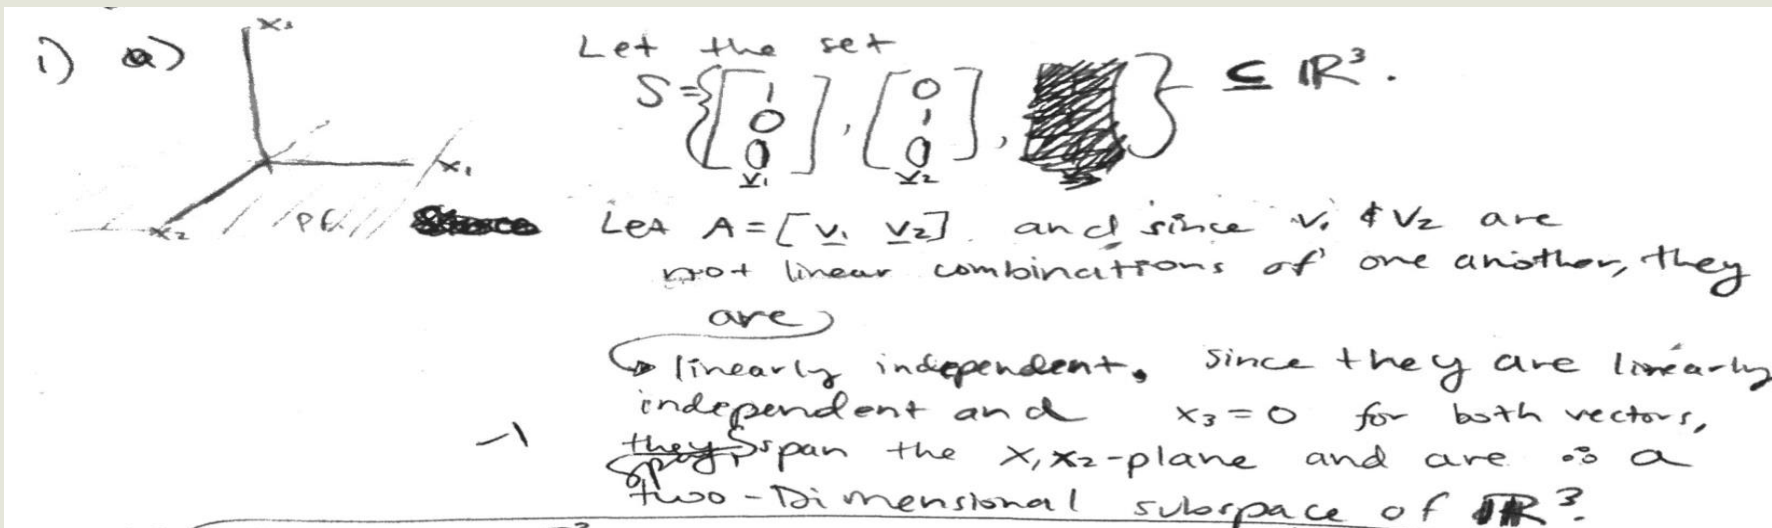 i) a)
x₃
x₁
x₂
Let the set
S = { [1 0 0], [0 1 0], } ⊆ ℝ³.
v₁ v₂
Let A = [v₁ v₂] and since v₁ & v₂ are
not linear combinations of one another, they
are
→ linearly independent. Since they are linearly
independent and x₃ = 0 for both vectors,
-1
they S span the x₁x₂-plane and are ∴ a
two-Dimensional subspace of ℝ³.